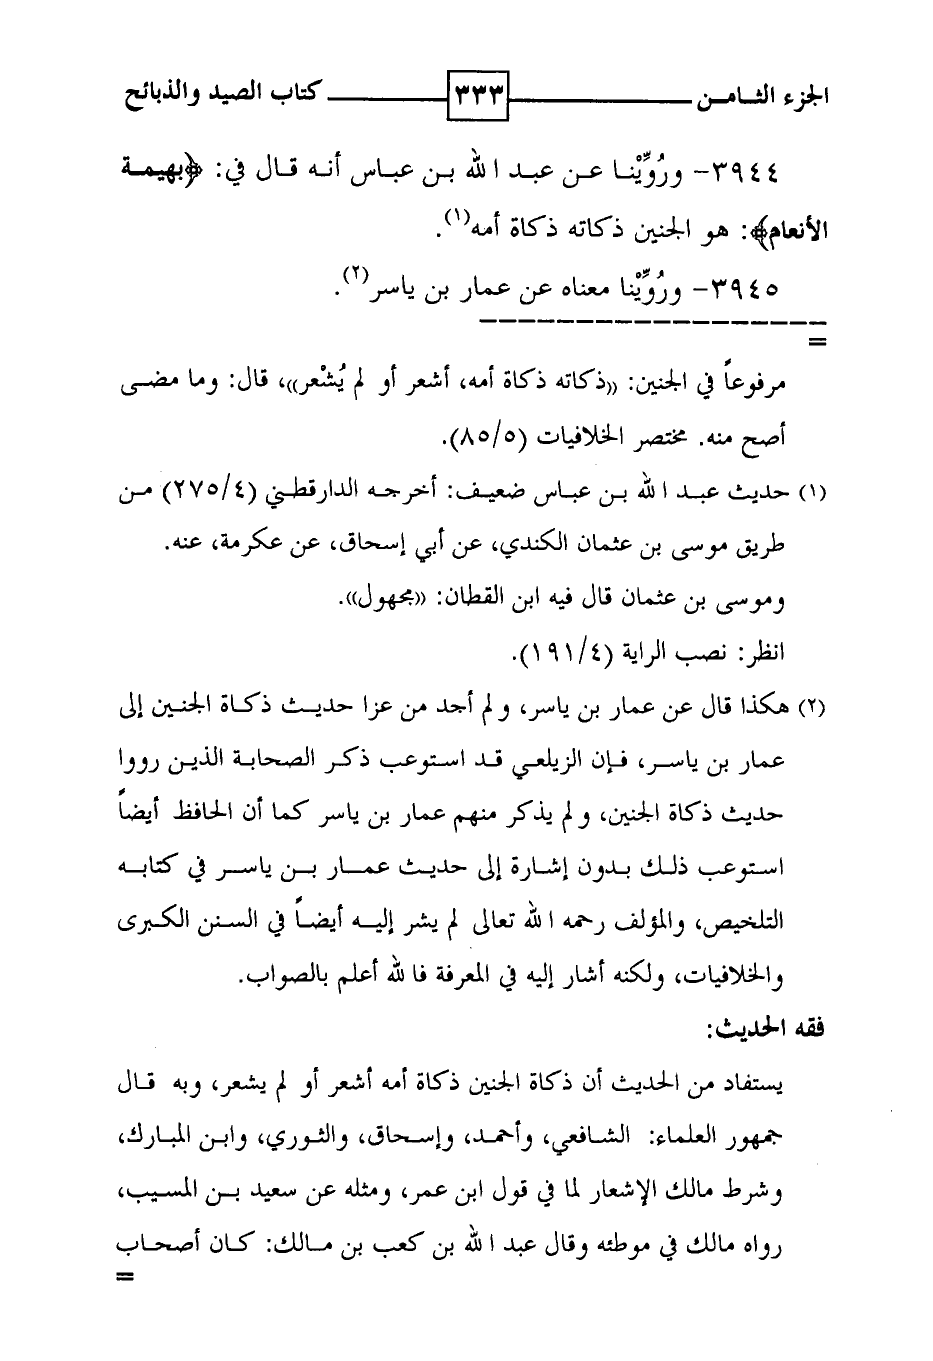 الجزء الثامن ٣٣٣ كتاب الصيد والذبائح
٣٩٤٤- ورُوِّيْنا عن عبد الله بن عباس أنه قال في: ﴿بهيمة
الأنعام﴾: هو الجنين ذكاته ذكاة أمه(١).
٣٩٤٥- ورُوِّيْنا معناه عن عمار بن ياسر(٢).
=
مرفوعاً في الجنين: ((ذكاته ذكاة أمه، أشعر أو لم يُشْعر))، قال: وما مضى
أصح منه. مختصر الخلافيات (٨٥/٥).
(١) حديث عبد الله بن عباس ضعيف: أخرجه الدارقطني (٢٧٥/٤) من
طريق موسى بن عثمان الكندي، عن أبي إسحاق، عن عكرمة، عنه.
وموسى بن عثمان قال فيه ابن القطان: ((مجهول)).
انظر: نصب الراية (١٩١/٤).
(٢) هكذا قال عن عمار بن ياسر، ولم أجد من عزا حديث ذكاة الجنين إلى
عمار بن ياسر، فإن الزيلعي قد استوعب ذكر الصحابة الذين رووا
حديث ذكاة الجنين، ولم يذكر منهم عمار بن ياسر كما أن الحافظ أيضاً
استوعب ذلك بدون إشارة إلى حديث عمار بن ياسر في كتابه
التلخيص، والمؤلف رحمه الله تعالى لم يشر إليه أيضاً في السنن الكبرى
والخلافيات، ولكنه أشار إليه في المعرفة فالله أعلم بالصواب.
فقه الحديث:
يستفاد من الحديث أن ذكاة الجنين ذكاة أمه أشعر أو لم يشعر، وبه قال
جمهور العلماء: الشافعي، وأحمد، وإسحاق، والثوري، وابن المبارك،
وشرط مالك الإشعار لما في قول ابن عمر، ومثله عن سعيد بن المسيب،
رواه مالك في موطئه وقال عبد الله بن كعب بن مالك: كان أصحاب
=